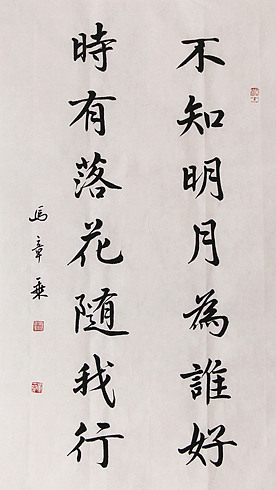 不知明月為誰好
時有落花隨我行
馬章乘